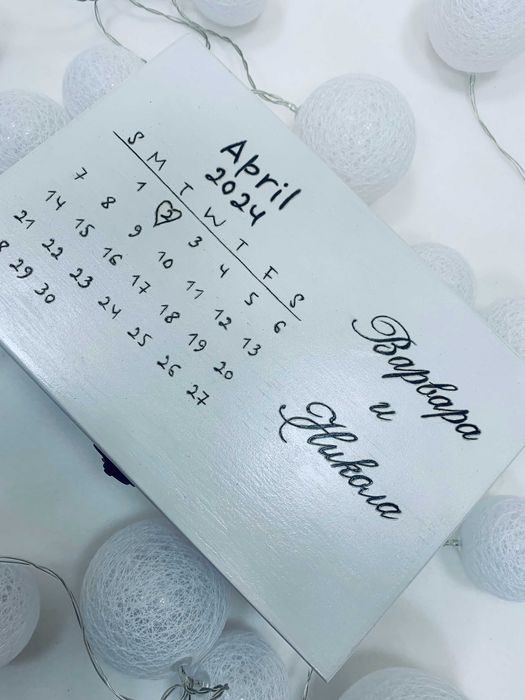 April
2024
S M T W T F S
1 2 3 4 5 6
7 8 9 10 11 12 13
14 15 16 17 18 19 20
21 22 23 24 25 26 27
29 30
Варвара
и
Никола